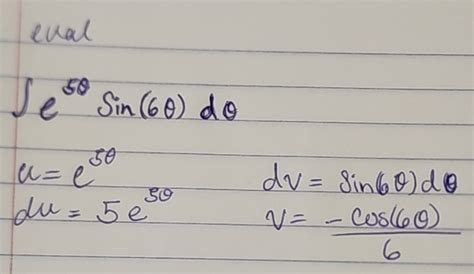 eval
∫e^{5θ} Sin(6θ) dθ
u = e^{5θ}    dv = Sin(6θ)dθ
du = 5e^{5θ}    v = -cos(6θ)/6